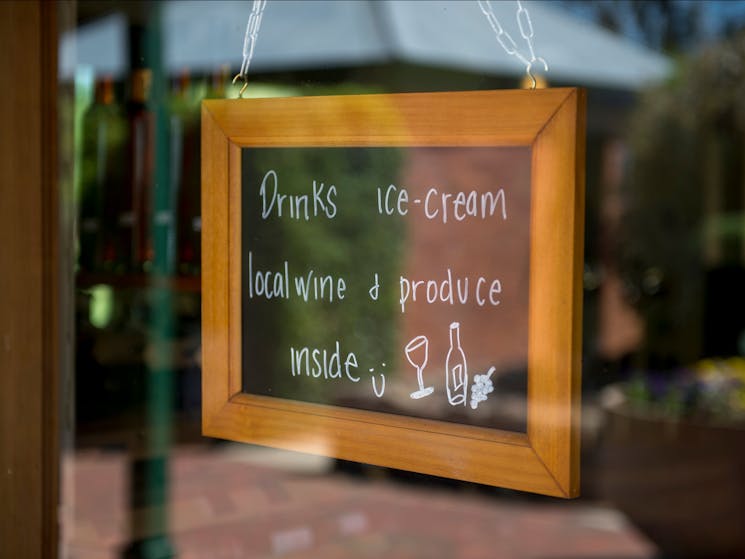 Drinks ice-cream
local wine & produce
inside